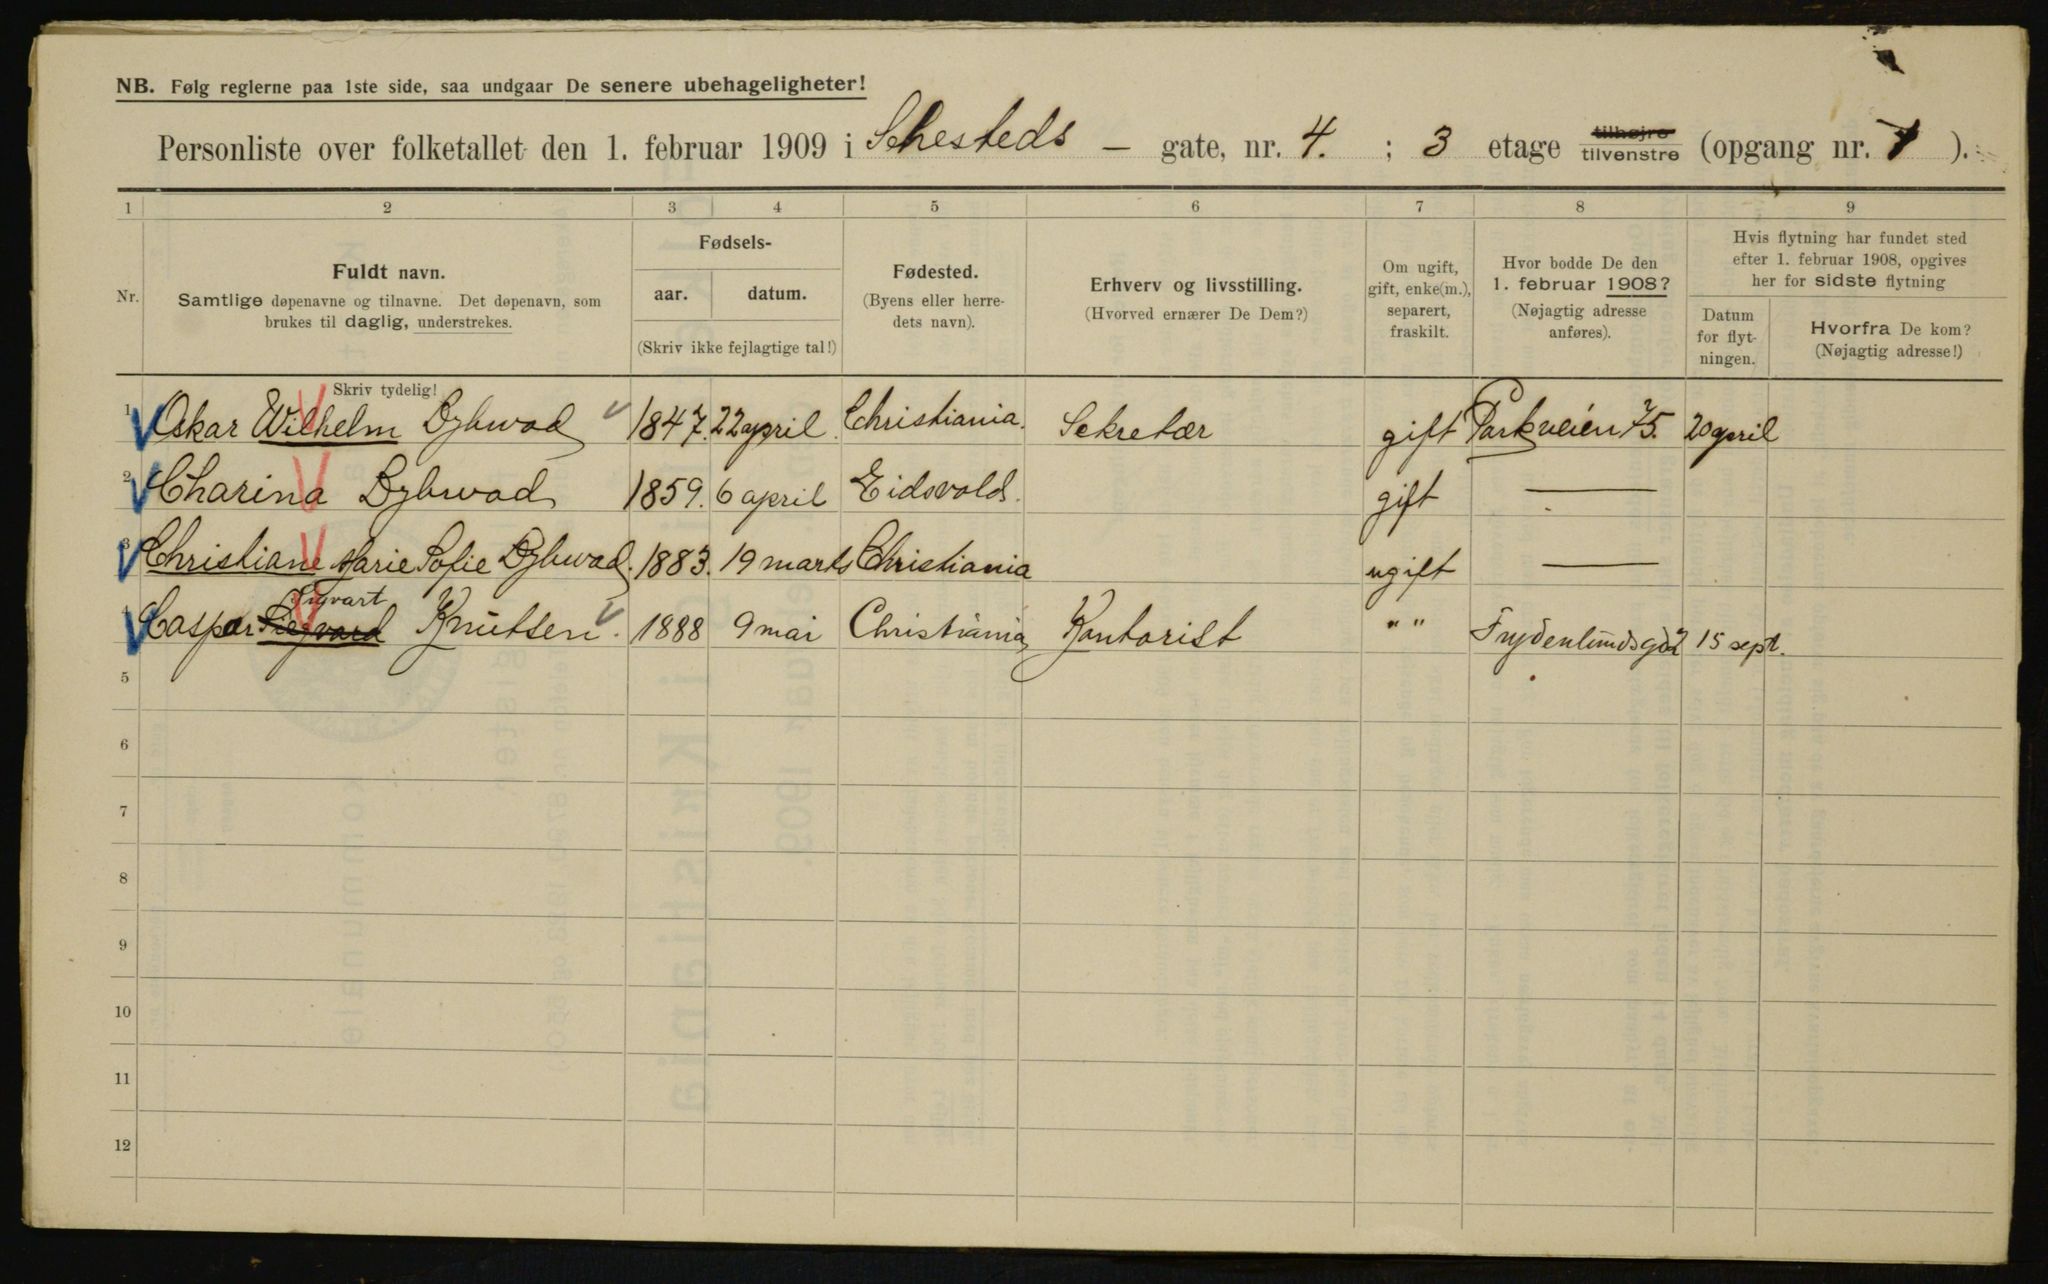 NB. Følg reglerne paa 1ste side, saa undgaar De senere ubehageligheter!
Personliste over folketallet den 1. februar 1909 i Sehesteds – gate, nr. 4. ; 3 etage tilhøjre tilvenstre (opgang nr. 1 ).
1 2 3 4 5 6 7 8 9
Nr.
Fuldt navn.
Samtlige døpenavne og tilnavne. Det døpenavn, som
brukes til daglig, understrekes.
Skriv tydelig!
Fødsels-
aar. datum.
(Skriv ikke fejlagtige tal!)
Fødested.
(Byens eller herre-
dets navn).
Erhverv og livsstilling.
(Hvorved ernærer De Dem?)
Om ugift,
gift, enke(m.),
separert,
fraskilt.
Hvor bodde De den
1. februar 1908?
(Nøjagtig adresse
anføres).
Hvis flytning har fundet sted
efter 1. februar 1908, opgives
her for sidste flytning
Datum
for flyt-
ningen.
Hvorfra De kom?
(Nøjagtig adresse!)
1 Oskar Wilhelm Dybwad 1847. 22 april. Christiania. Sekretær gift Parkveien 75. 20 april
2 Charina Dybwad 1859. 6 april Eidsvold. gift —
3 Christiane Marie Sofie Dybwad. 1883. 19 marts Christiania ugift —
Sigvart
4 Caspar Siegvard Knutsen. 1888 9 mai Christiania Kontorist " " Frydenlundsgd 2 15 sept.
5
6
7
8
9
10
11
12